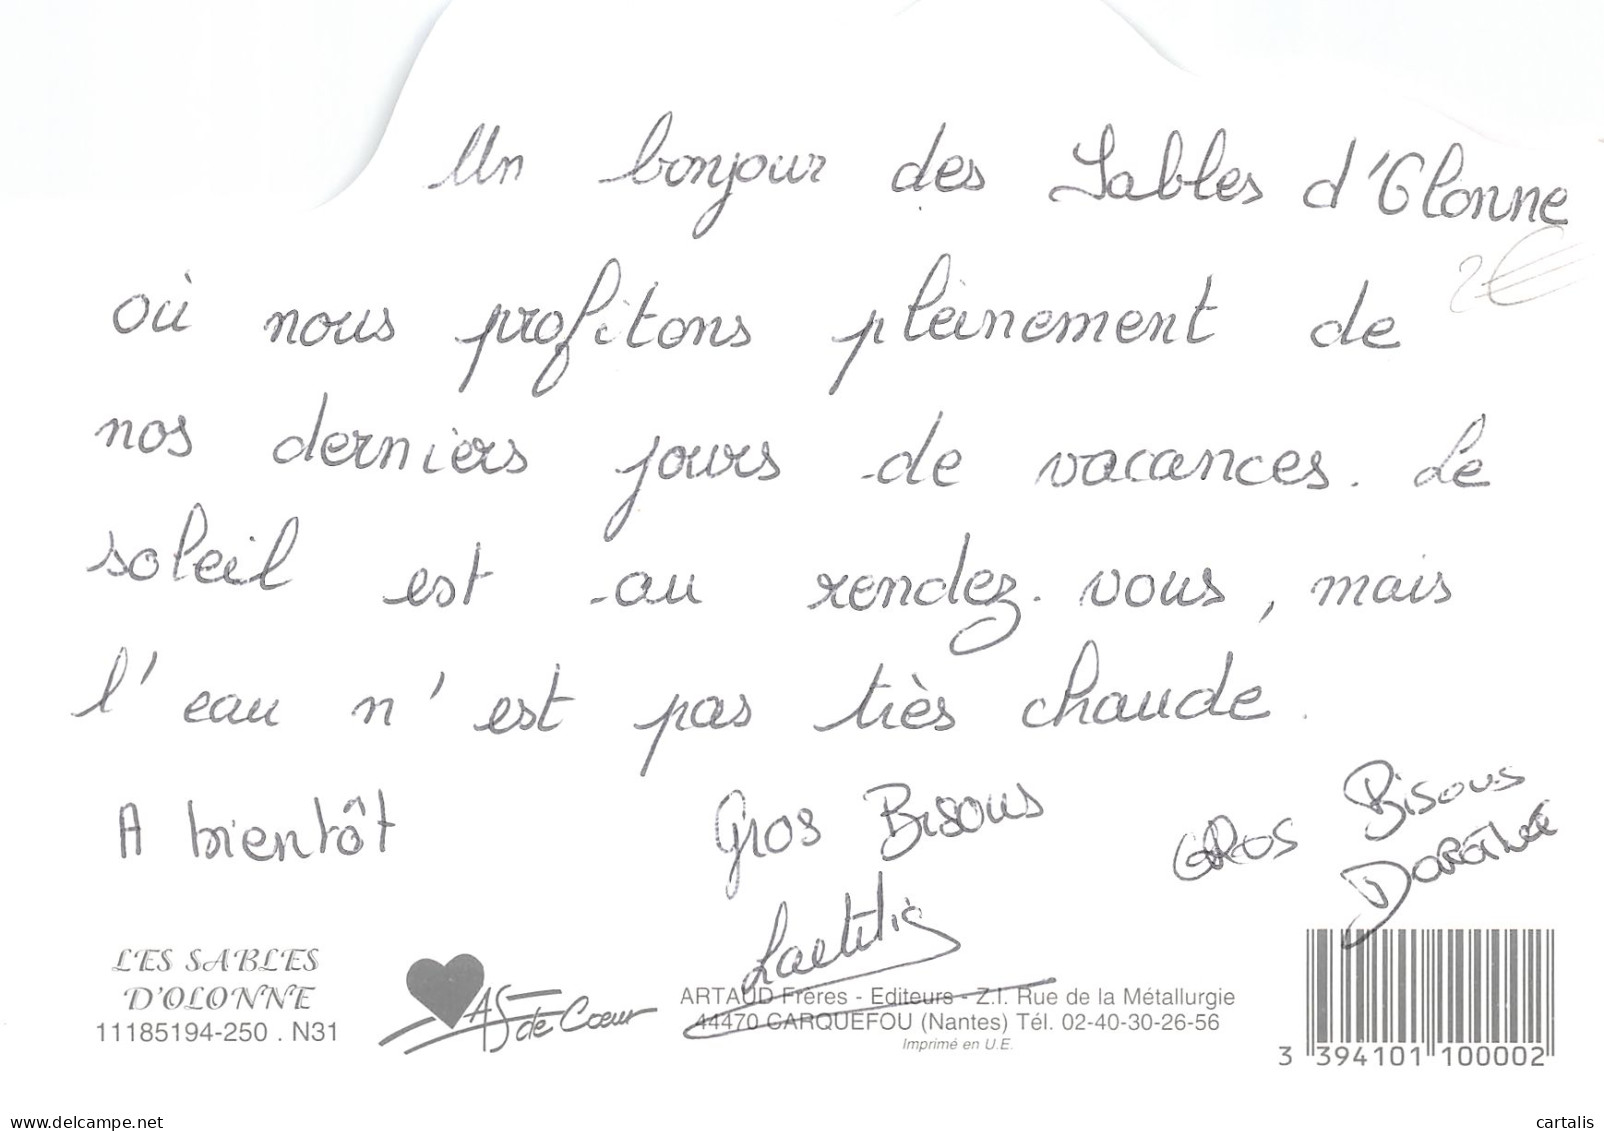 Un bonjour des Sables d'Olonne
2€
où nous profitons pleinement de
nos derniers jours de vacances. Le
soleil est au rendez-vous, mais
l'eau n'est pas très chaude.
A bientôt
Gros Bisous
Laetitia
GROS Bisous
LES SABLES
D'OLONNE
11185194-250 . N31
AS de Cœur
ARTAUD Frères - Editeurs - Z.I. Rue de la Métallurgie
44470 CARQUEFOU (Nantes) Tél. 02-40-30-26-56
Imprimé en U.E.
3 394101 100002
www.delcampe.net
cartalis